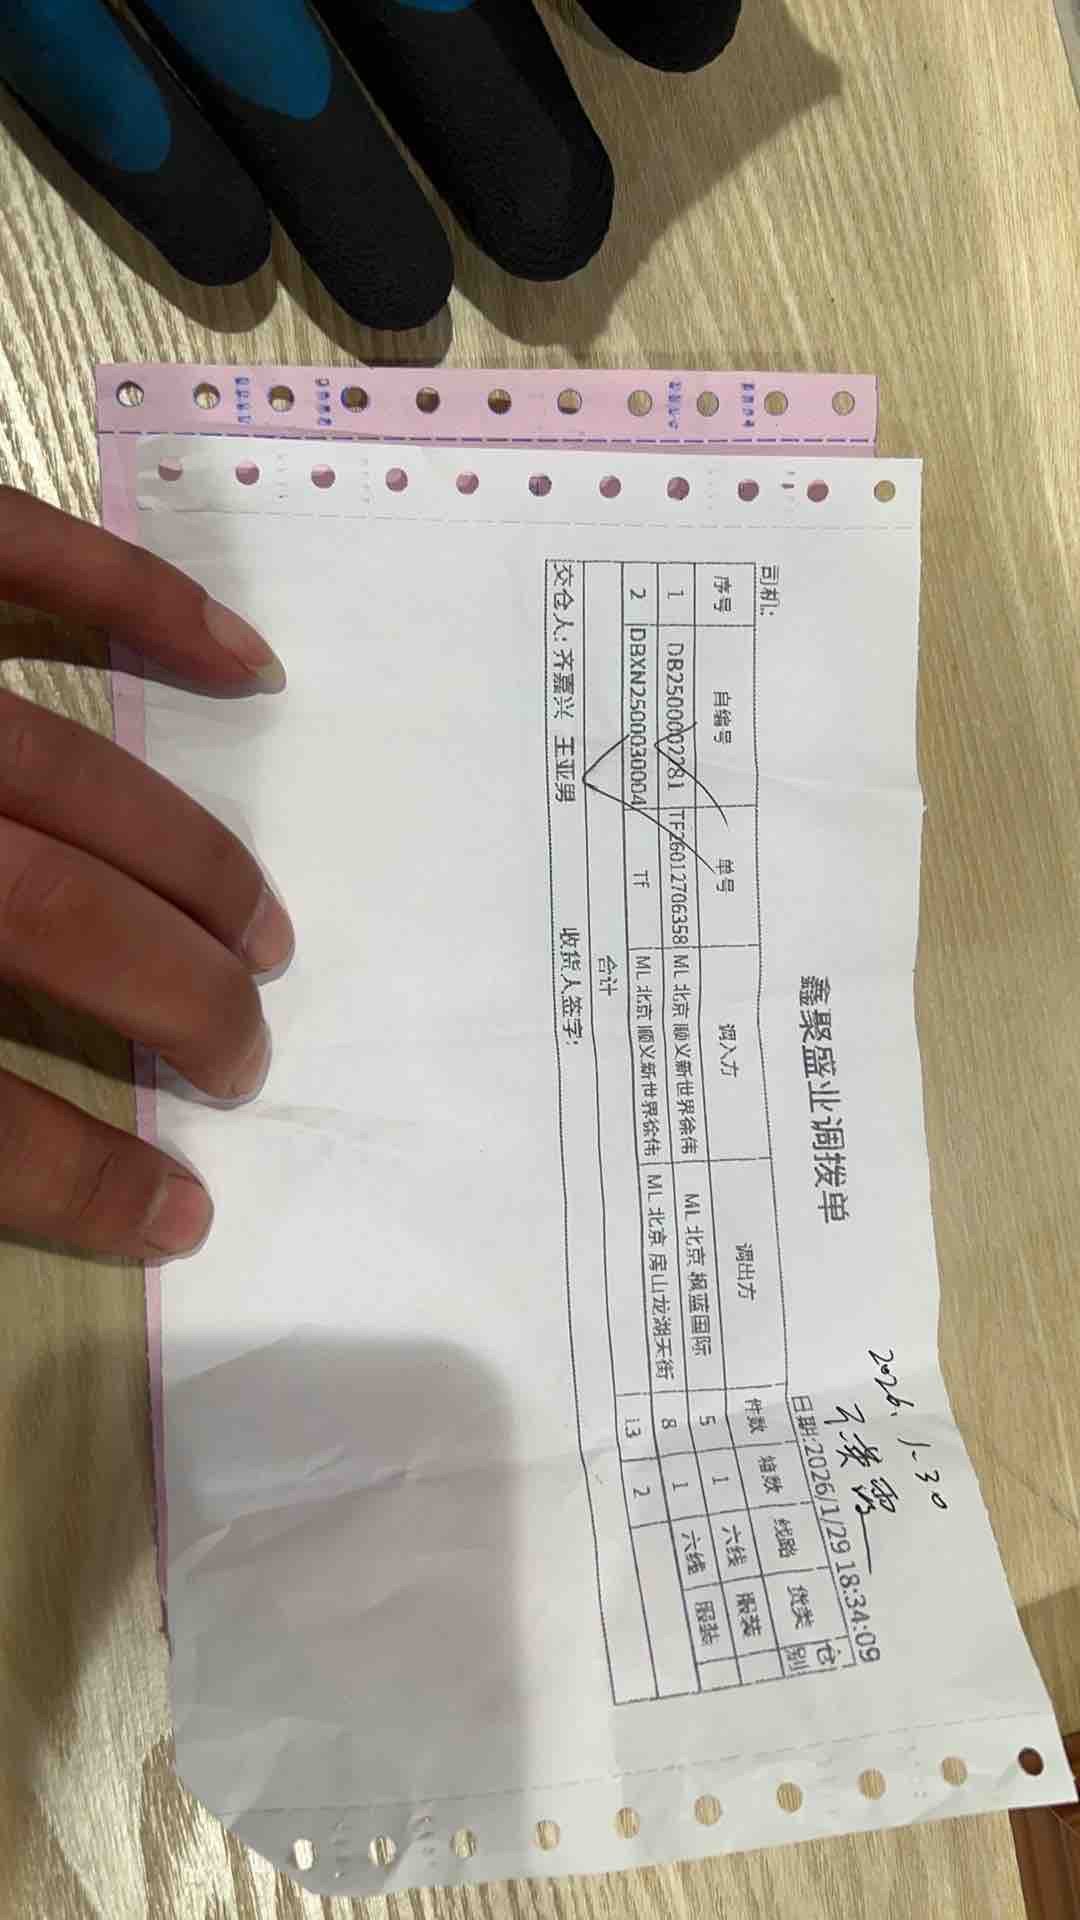 鑫聚盛业调拨单
2026.1.30
司机:
日期:2026/1/29 18:34:09
序号 自编号 单号 调入方 调出方 件数 箱数 线路 货类 仓别
1 DB2500002281 TF26012706358 ML 北京 顺义新世界徐伟 ML 北京 枫蓝国际 5 1 六线 服装
2 DBXN2500030004 Tf ML 北京 顺义新世界徐伟 ML 北京 房山龙湖天街 8 1 六线 服装
合计 13 2
交仓人: 齐嘉兴 王亚男 收货人签字: